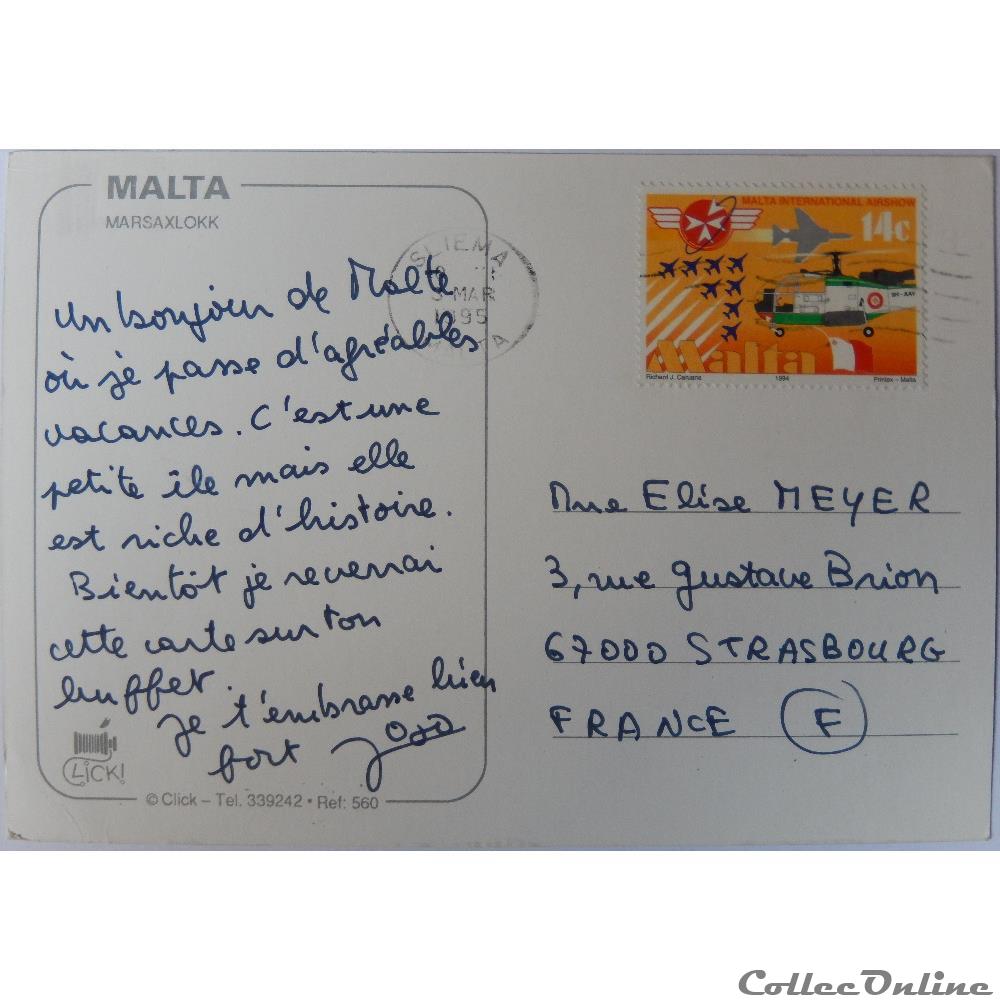 MALTA
MARSAXLOKK
Un bonjour de Malte
où je passe d'agréables
vacances. C'est une
petite île mais elle
est riche d'histoire.
Bientôt je reverrai
cette carte sur ton
buffet.
Je t'embrasse bien
fort
CLICK!
© Click – Tel. 339242 • Ref: 560
SLIEMA
MAR
1995
MALTA INTERNATIONAL AIRSHOW
14c
9H-AAV
Malta
Richard J. Caruana 1994 Printex – Malta
Mme Elise MEYER
3, rue Gustave Brion
67000 STRASBOURG
FRANCE F
CollecOnline